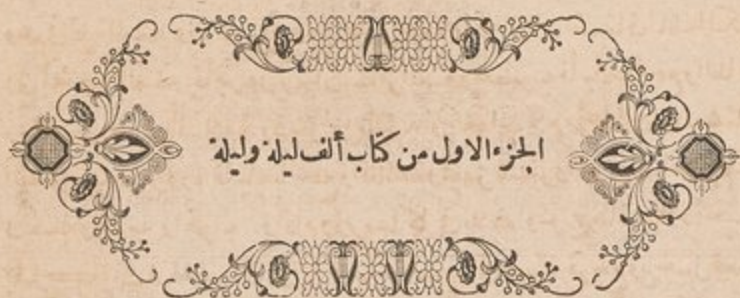 الجزء الاول من كتاب ألف ليلة وليلة